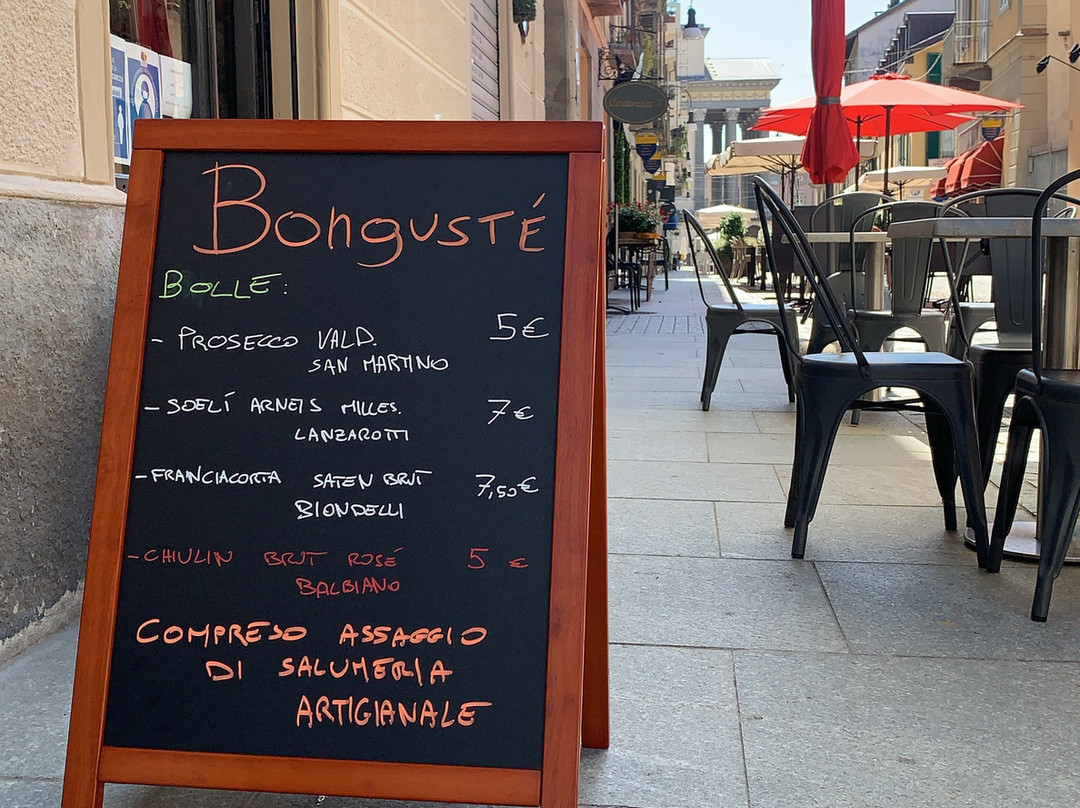 BONGUSTÉ
BOLLE:
- PROSECCO VALD. 5€
SAN MARTINO
- SOELÍ ARNEIS MILLES. 7€
LANZAROTTI
- FRANCIACORTA SATEN BRUT 7,50€
BIONDELLI
- CHIULIN BRUT ROSÉ 5 €
BALBIANO
COMPRESO ASSAGGIO
DI SALUMERIA
ARTIGIANALE